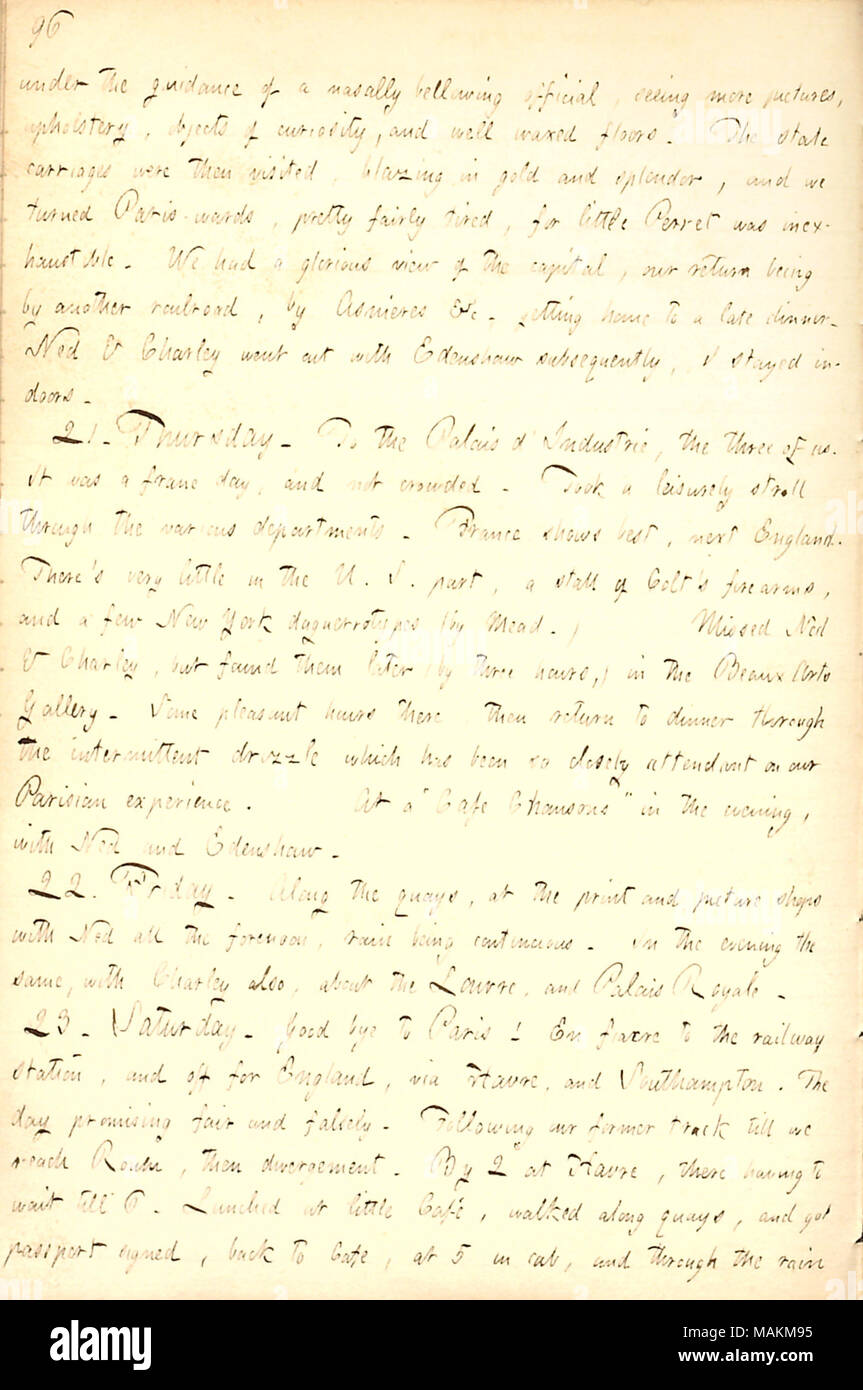 96
under the guidance of a nasally bellowing official, seeing more pictures,
upholstery, objects of curiosity, and well waxed floors. The state
carriages were then visited, blazing in gold and splendor, and we
turned Paris-wards, pretty fairly tired, for little Perret was inex-
haustible. We had a glorious view of the capital, our return being
by another railroad, by Asnieres &c. getting home to a late dinner.
Ned & Charley went out with Edenshaw subsequently, I stayed in-
doors.
21. Thursday. To the Palais d' Industrie, the three of us.
It was a franc day, and not crowded. Took a leisurely stroll
through the various departments. France shows best, next England.
There's very little in the U. S. part, a stall of Colt's firearms,
and a few New York daguerrotypes (by Mead.) Missed Ned
& Charley, but found them later (by three hours,) in the Beaux Arts
Gallery. Some pleasant hours there then return to dinner through
the intermittent drizzle which has been so closely attendant on our
Parisian experience. At a "Cafe Chansons" in the evening,
with Ned and Edenshaw.
22. Friday. Along the quays, at the print and picture shops
with Ned all the forenoon, rain being continuous. In the evening the
same, with Charley also, about the Louvre, and Palais Royale.
23. Saturday. Good bye to Paris! En fiacre to the railway
station, and off for England, via Havre, and Southampton. The
day promising fair and falsely. Following our former track till we
reach Rouen, then divergement. By 2 at Havre, there having to
wait till . Lunched at little Café, walked along quays, and got
passport signed, back to Cafe, at 5 in cab, and through the rain
alamy
Image ID: MAKM95
www.alamy.com